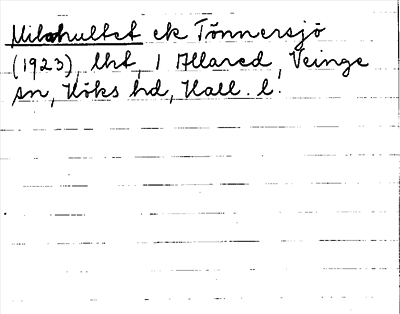 Milshultet ek Tönnersjö
(1923), lht, 1 Allared, Veinge
sn, Höks hd, Hall. l.